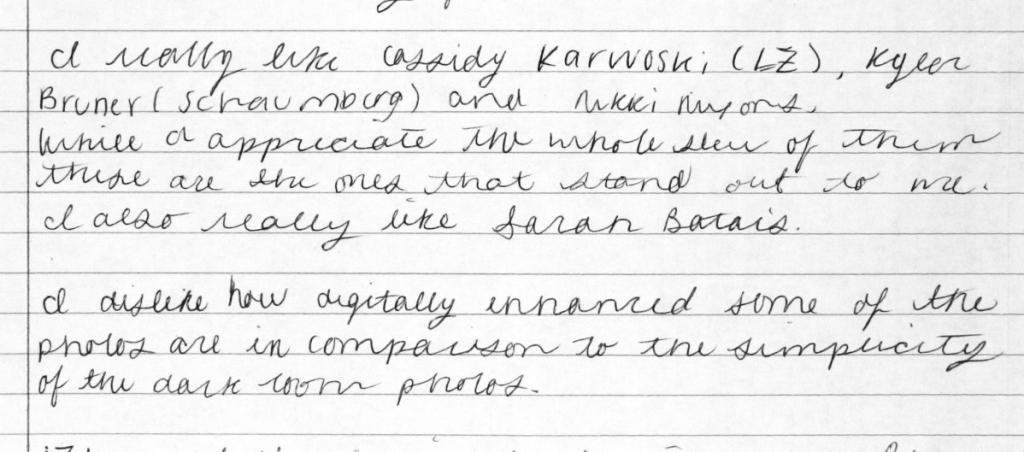 I really like Cassidy Karwoski (LZ),
Bruner (Schaumburg) and Nikki
While I appreciate the whole slew of them
these are the ones that stand out to me.
I also really like Sarah
I dislike how digitally enhanced some of the
photos are in comparison to the simplicity
of the dark room photos.